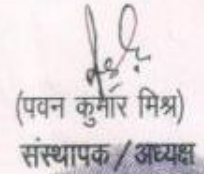 (पवन कुमार मिश्र)
संस्थापक / अध्यक्ष